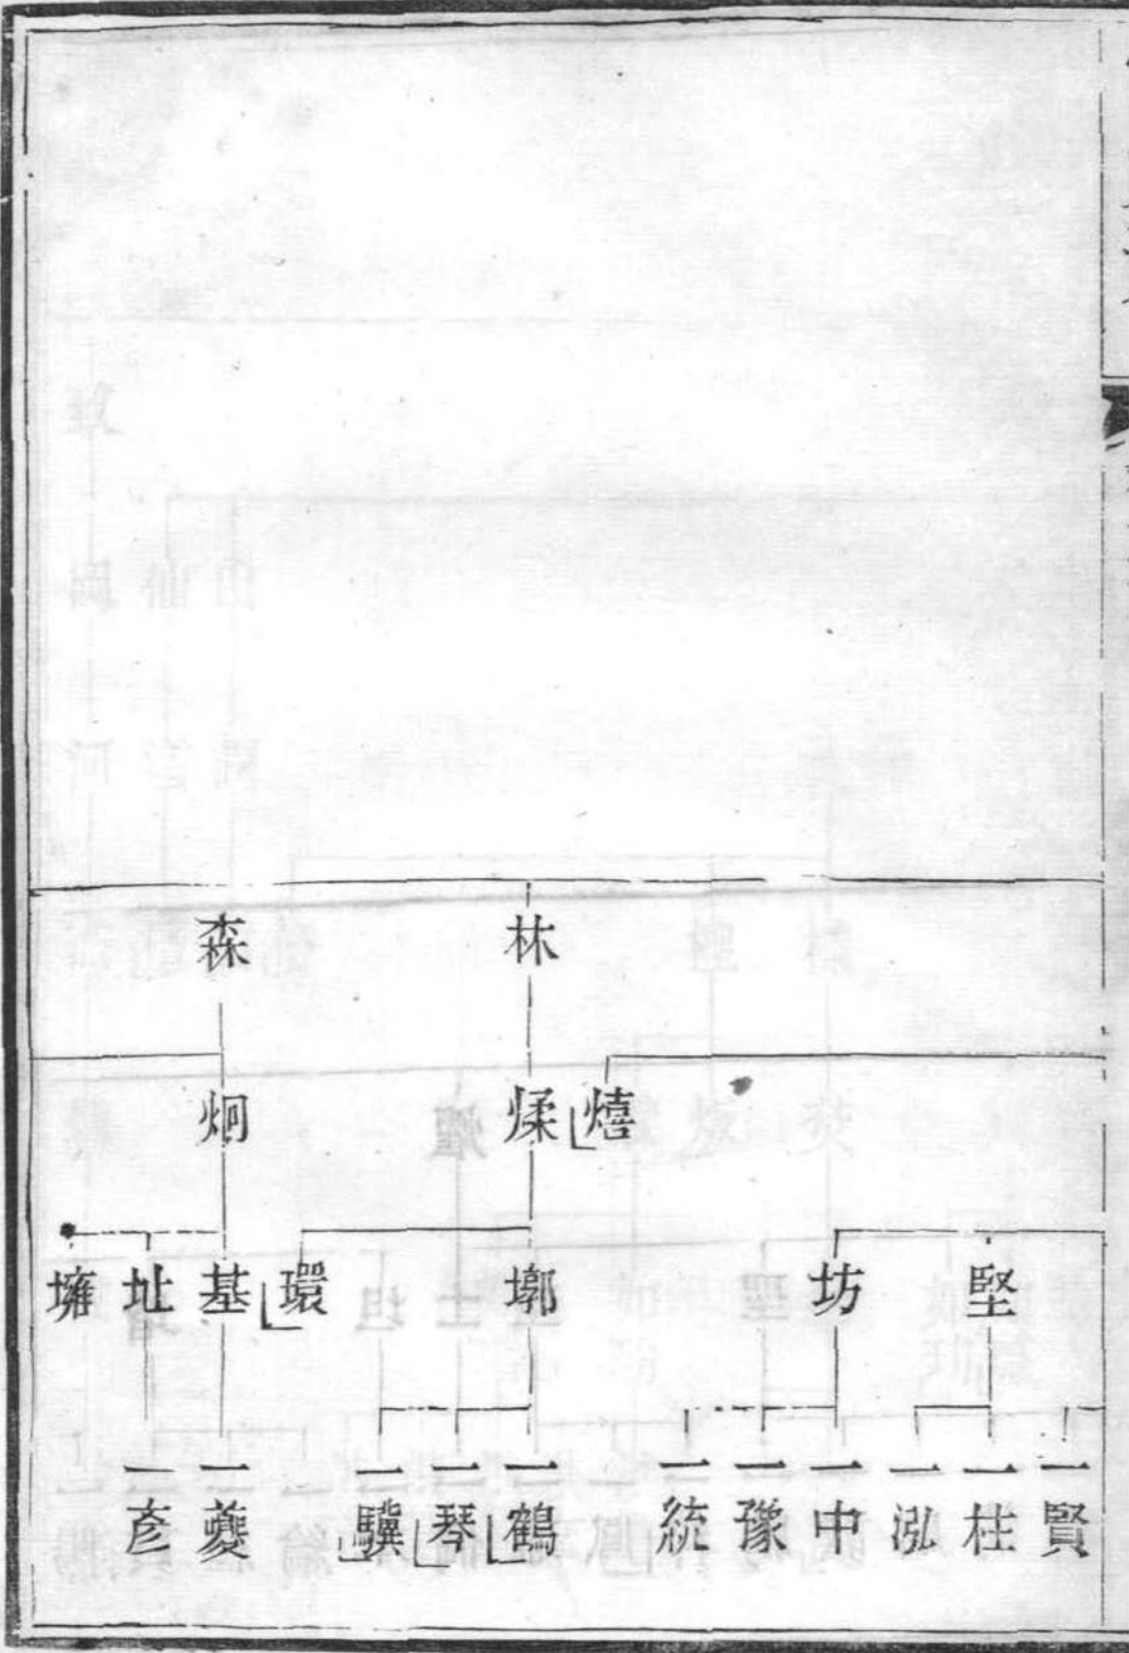 林 森
熺 煣 炯
堅 坊 墎 環 基 址 墉
一賢 一桂 一泓 一中 一豫 一統 一鶴 一琴 一驥 一夔 一彥